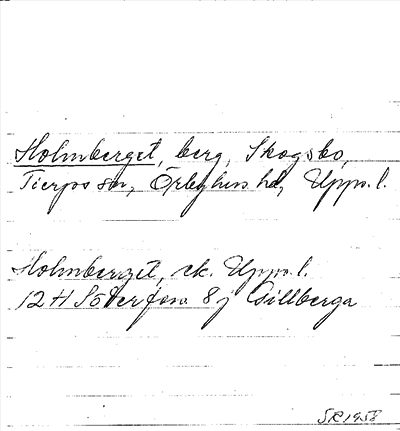 Holmberget, berg, Skogsbo,
Tierps sn, Örbyhus hd, Uppl.
Holmberget, ek. Uppl.
12 H Söderfors 8 j Gillberga
SR 1958